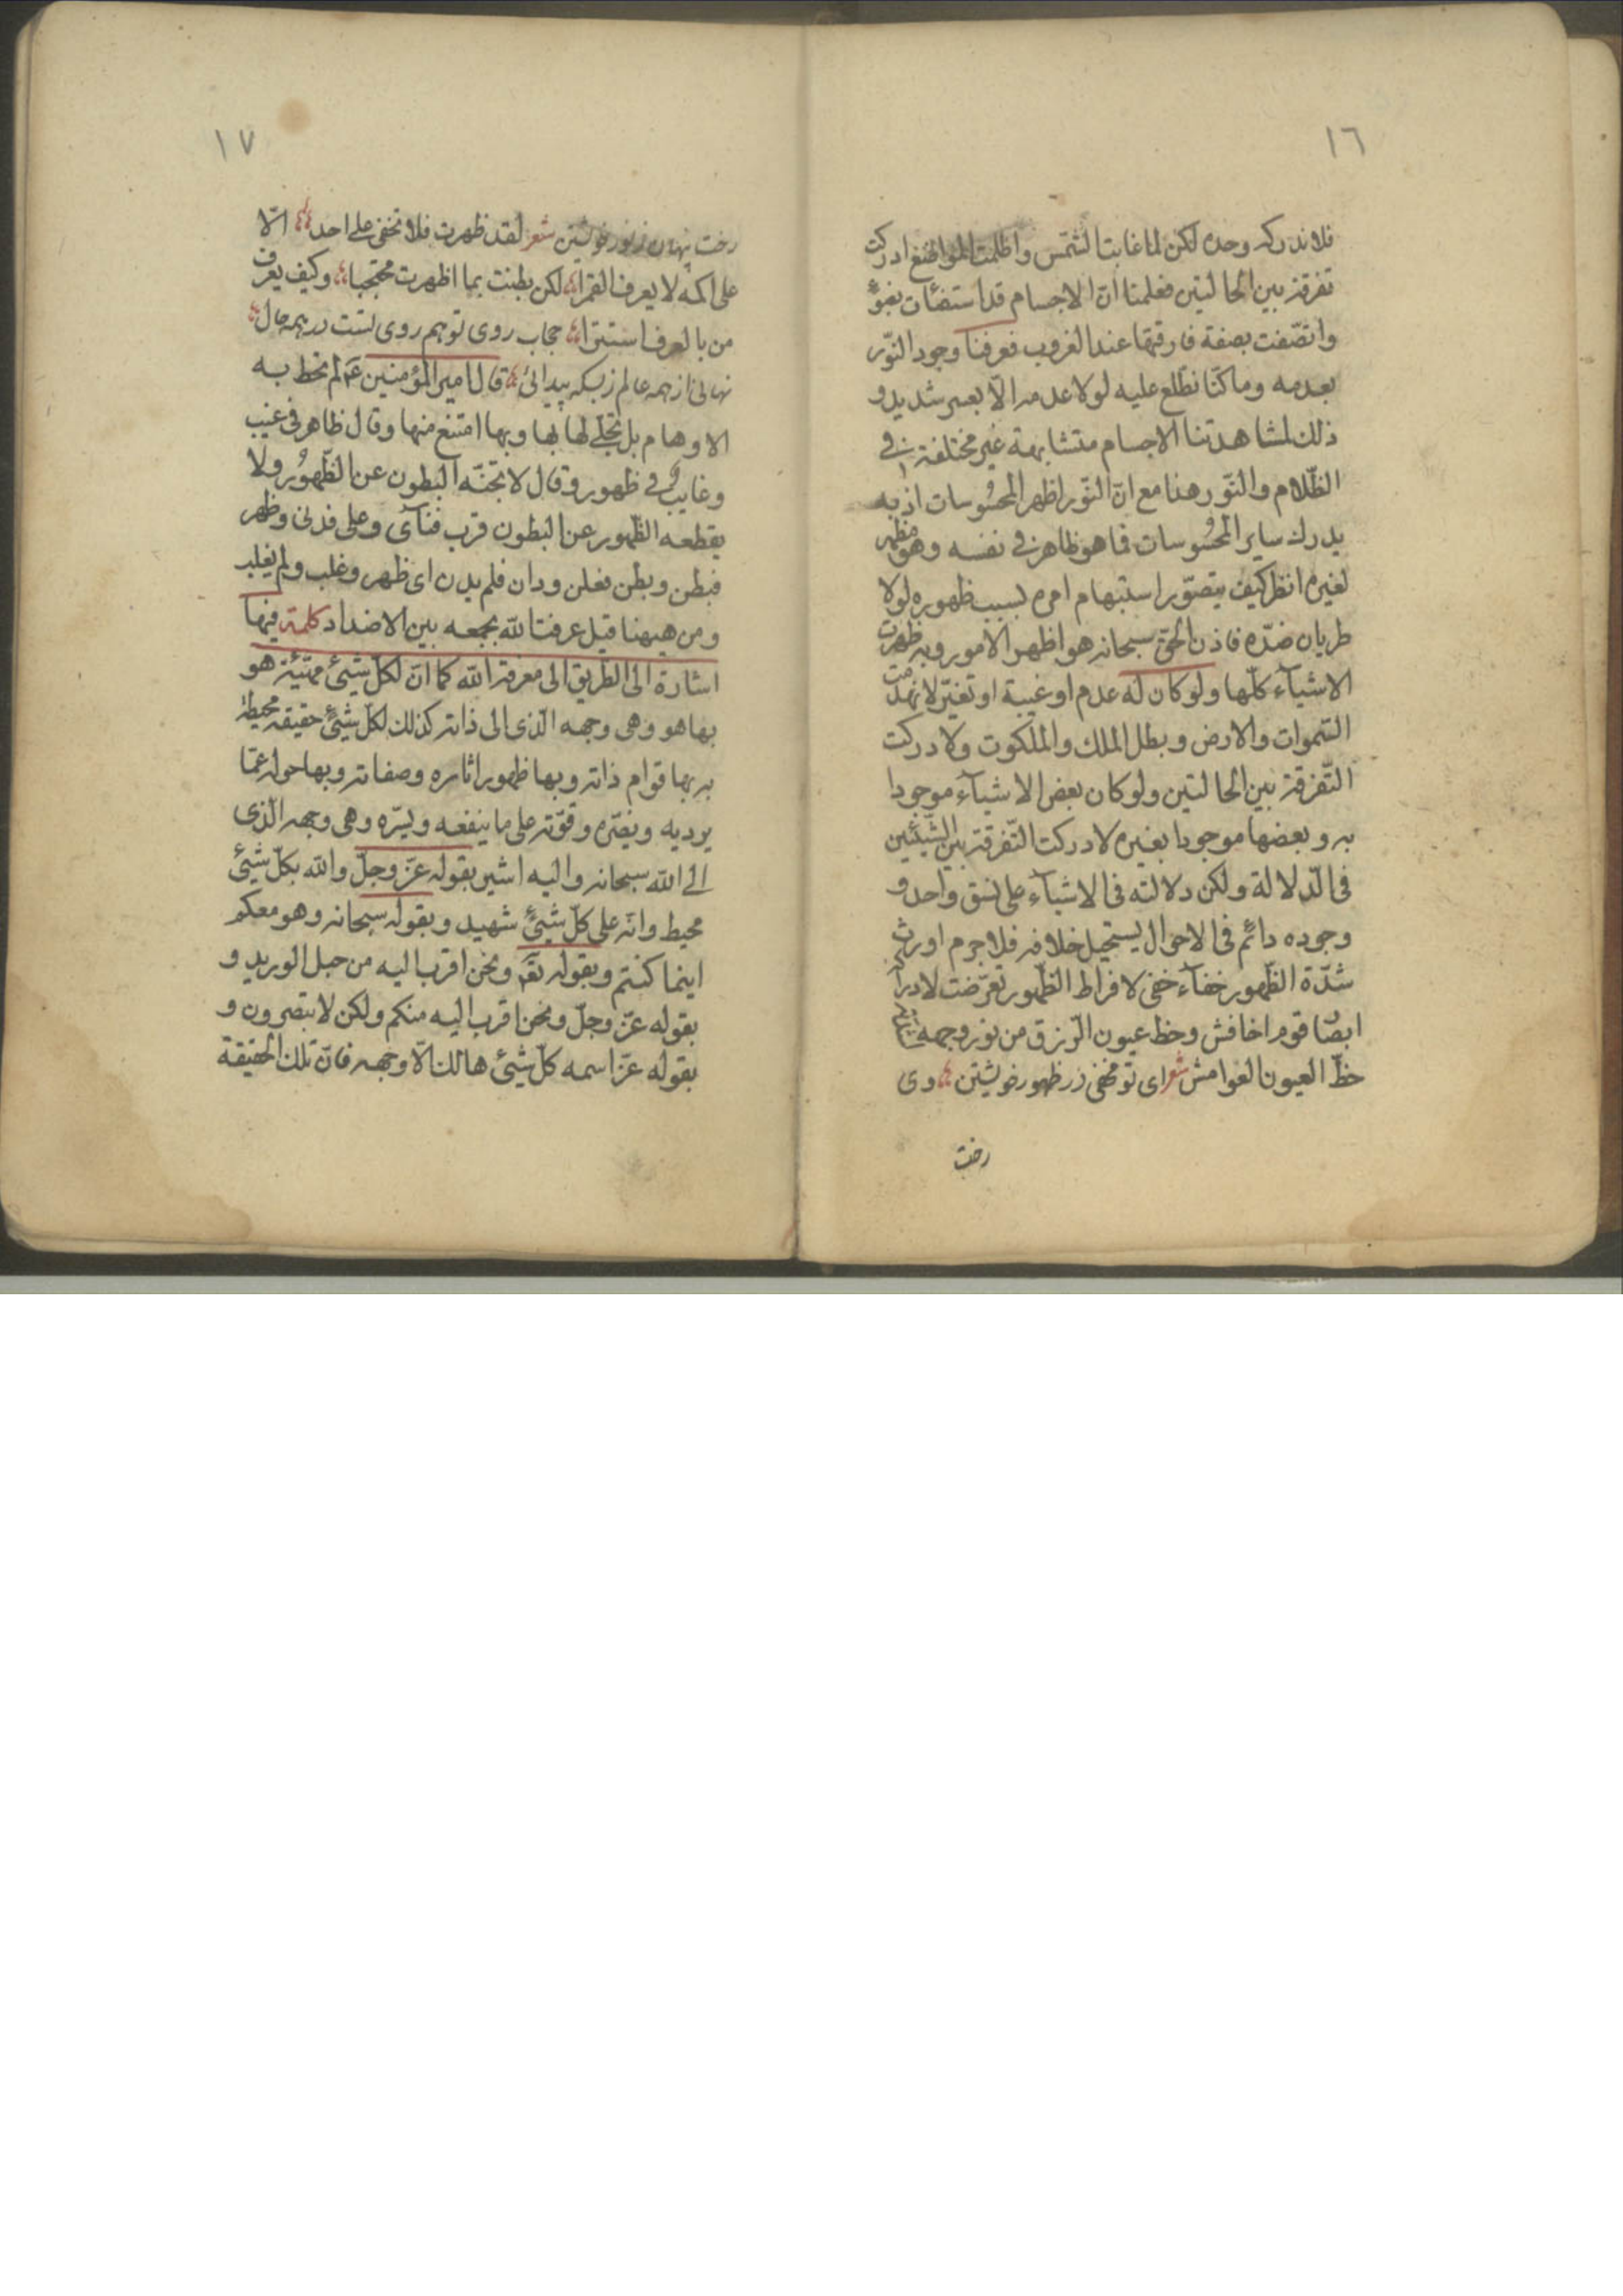 ١٦
فلا ندركه وحده لكن لما غابت الشمس واظلمت المواضع ادركت
تفرقة بين الحالتين فعلمنا ان الاجسام قد استضأت بضوء
واتصفت بصفة فارقتها عند الغروب فعرفنا وجود النور
بعدمه وما كنا نطلع عليه لولا عدمه الا بعسر شديد و
ذلك لمشاهدتنا الاجسام متشابهة غير مختلفة في
الظلام والنور هذا مع ان النور اظهر المحسوسات اذ به
يدرك ساير المحسوسات فما هو ظاهر في نفسه وهو مظهر
لغيره انظر كيف يتصور استبهام امره بسبب ظهوره لولا
طريان ضده فاذن الحق سبحانه هو اظهر الامور وبه ظهرت
الاشياء كلها ولو كان له عدم او غيبة او تغير لانهدمت
السموات والارض وبطل الملك والملكوت ولادركت
التفرقة بين الحالتين ولو كان بعض الاشياء موجودا
به وبعضها موجودا بغيره لادركت التفرقة بين الشيئين
في الدلالة ولكن دلالته في الاشياء على نسق واحد و
وجوده دائم في الاحوال يستحيل خلافه فلا جرم اورث
شدة الظهور خفاء خفي لافراط الظهور تعرضت لادراك
ابصار قوم اخافش وحظ عيون الزرق من نور وجهه
حظ العيون الغوامش شعر اى تو مخفى در ظهور خويشتن وى
رخت
١٧
رخت پنهان ز نور خويشتن شعر لقد ظهرت فلا تخفى على احد الا
على اكمه لا يعرف القمرا لكن بطنت بما اظهرت محتجبا وكيف يعرف
من بالعرف استترا حجاب روى تو هم روى تست در همه حال
نهانى از همه عالم ز بسكه پيدائى قال امير المؤمنين ع لم تحط به
الاوهام بل تجلى لها بها وبها امتنع منها وقال ظاهر في غيب
وغايب في ظهور وقال لا تجنه البطون عن الظهور ولا
يقطعه الظهور عن البطون قرب فنأى وعلى فدنى وظهر
فبطن وبطن فعلن ودان فلم يدن اى ظهر وغلب ولم يغلب
ومن هيهنا قيل عرفت الله بجمعه بين الاضداد كلمة فيها
اشارة الى الطريق الى معرفة الله كما ان لكل شيئ مهيئة هو
بها هو وهى وجهه الذى الى ذاته كذلك لكل شيئ حقيقة محيطة
به بها قوام ذاته وبها ظهور اثاره وصفاته وبها حوله عما
يوديه ويضره وقوته على ما ينفعه ويسره وهى وجهه الذى
الى الله سبحانه واليه اشير بقوله عز وجل والله بكل شيئ
محيط وانه على كل شيئ شهيد وبقوله سبحانه وهو معكم
اينما كنتم وبقوله تع ونحن اقرب اليه من حبل الوريد و
بقوله عز وجل ونحن اقرب اليه منكم ولكن لا تبصرون و
بقوله عز اسمه كل شيئ هالك الا وجهه فان تلك الحقيقة